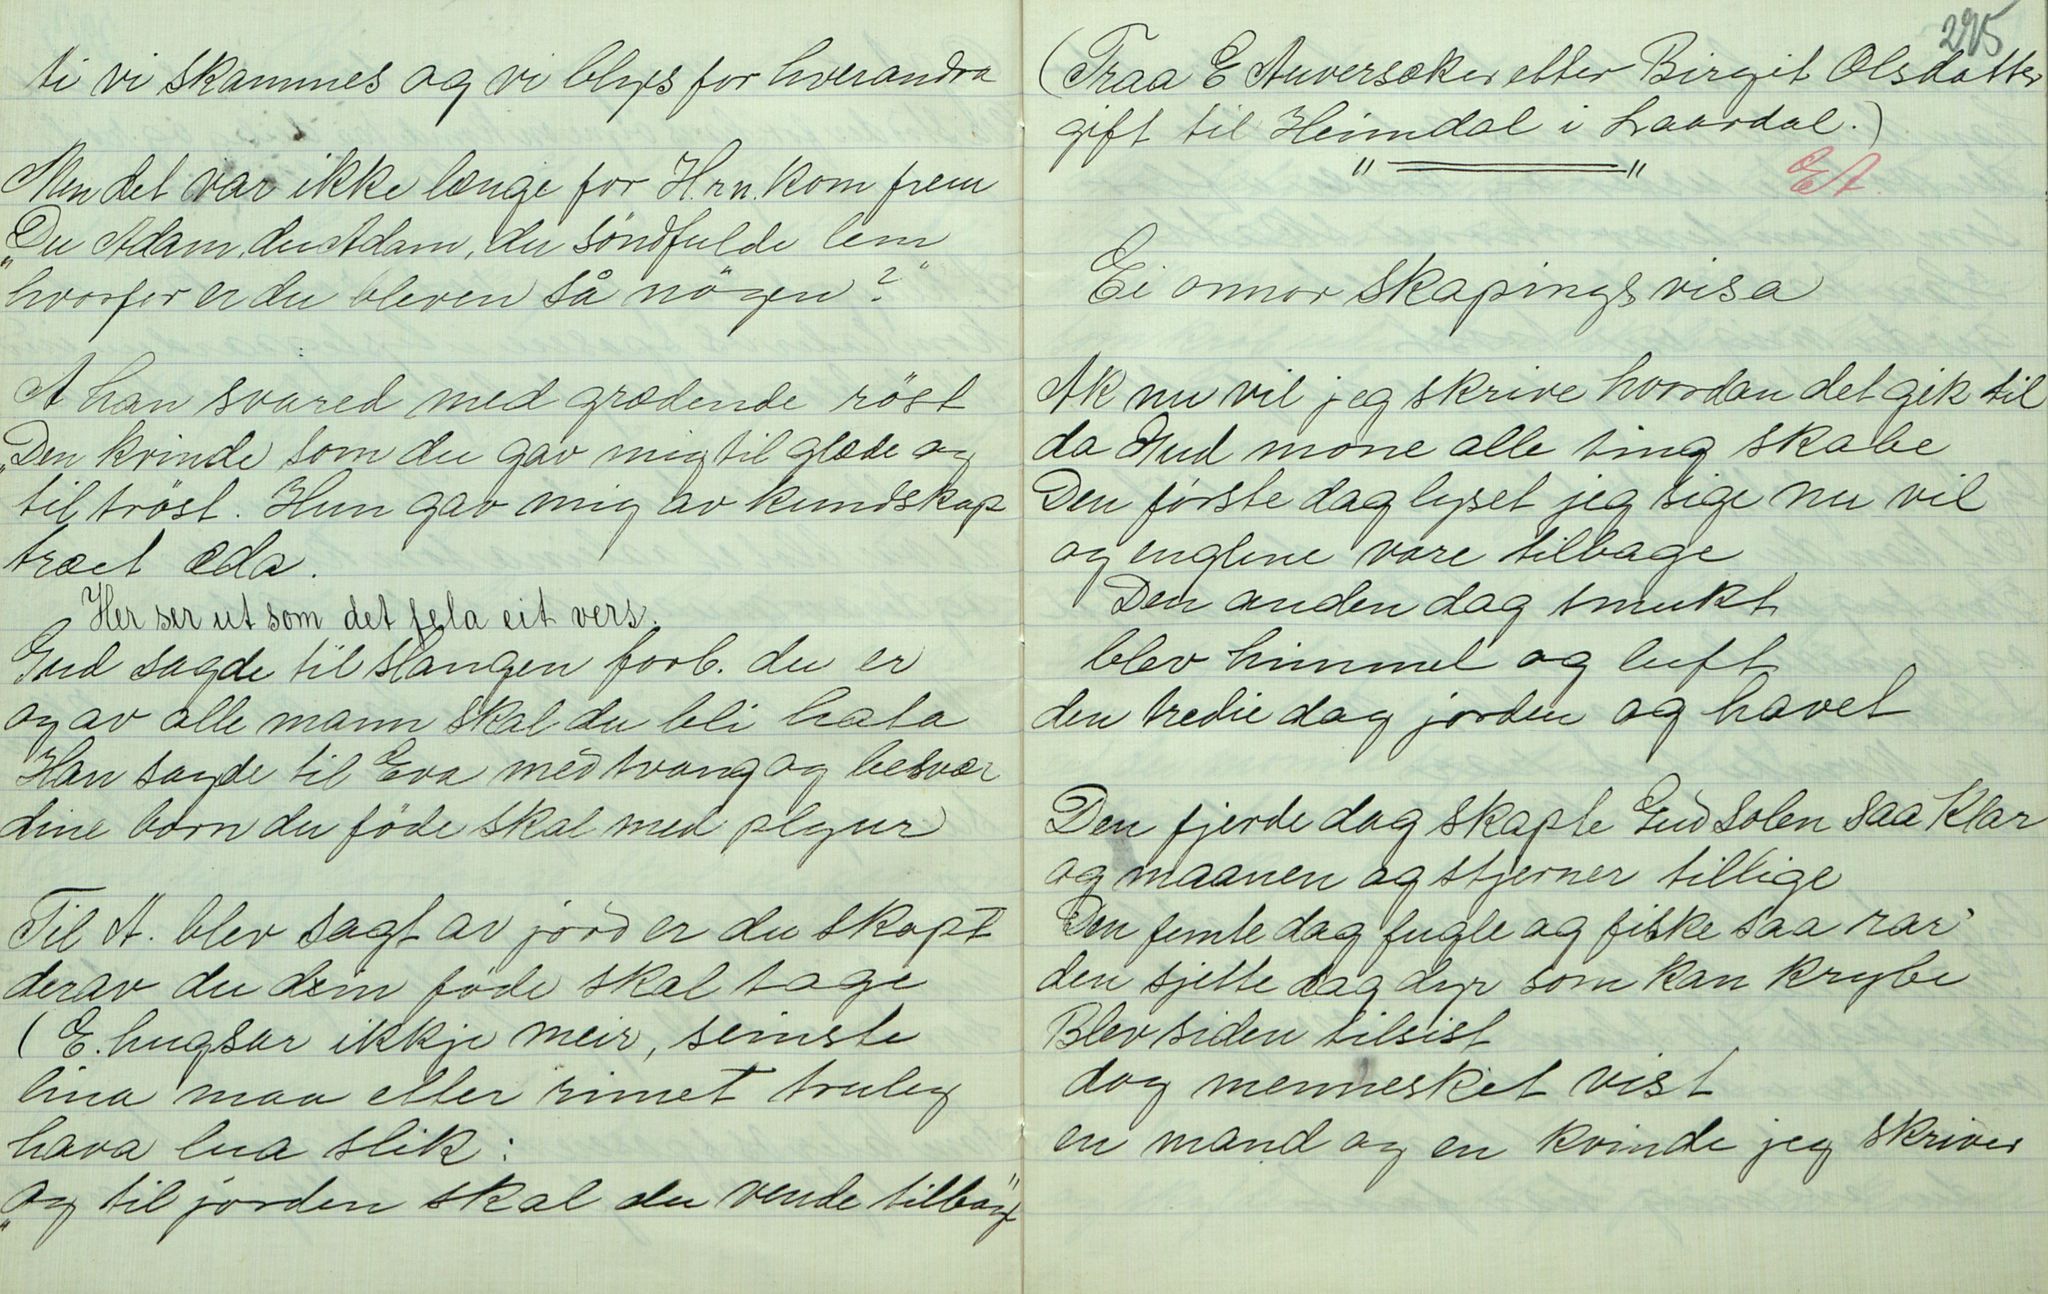 ti vi skammes og vi blyes for hverandra
Men det var ikke længe for H.r.n. kom frem
„Du Adam, du Adam, du söndfulde lem
hvorfor er du bleven så nögen?“
A han svared med grædende röst
„Den kvinde som du gav mig til glæde og
til tröst. Hun gav mig av kundskap
træet æda.
Her ser ut som det fela eit vers.
Gud sagde til slangen forb. du er
og av alle mann skal du bli hata
Han sagde til Eva med tvang og besvær
dine born du föde skal med
Til A. blev sagt av jord er du skapt
derav du dein föde skal tage
(E. hugsar ikkje meir, seinste
lina maa etter rimet truleg
hava lua slik:
„og til jorden skal du vende tilbage“
295
(Fraa E Anversæker etter Birgit Olsdatter
gift til Heimdal i Laardal.)
" "
EA.
Ei onnor skapingsvisa
Ak nu vil jeg skrive hvordan det gik til
da Gud mone alle ting skabe
Den første dag lyset jeg sige nu vil
og englene vare tilbage
Den anden dag smukt
blev himmel og luft
den tredie dag jorden og havet
Den fjerde dag skapte Gud solen saa klar
og maanen og stjerner tillige
Den femte dag fugle og fiske saa rar
den sjette dag dyr som kan krybe
Blev siden tilsist
dog mennesket vist
en mand og en kvinde jeg skriver